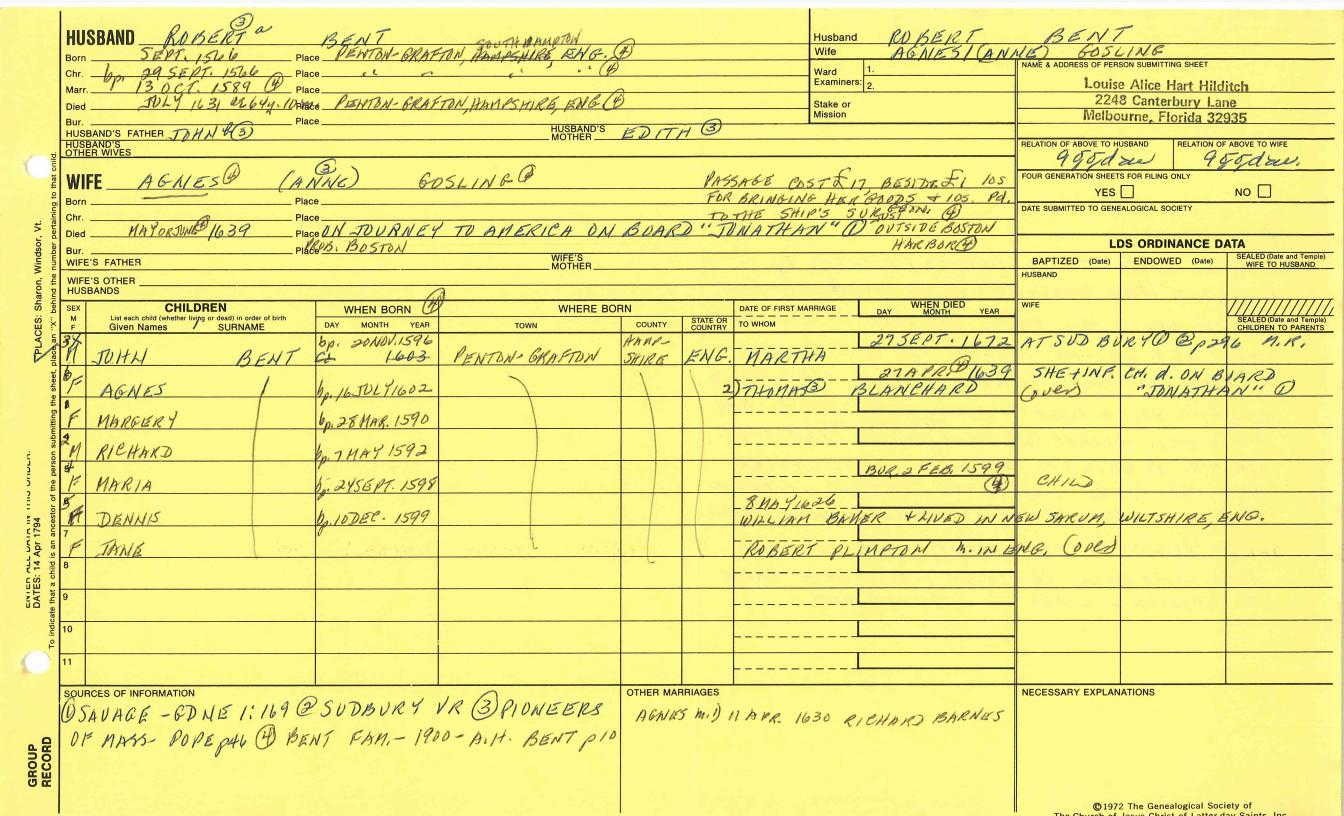 HUSBAND ROBERT a ③ BENT
Born SEPT. 1566 Place PENTON-GRAFTON, SOUTHAMPTON HAMPSHIRE, ENG. ④
Chr. bp. 29 SEPT. 1566 Place " " " " ④
Marr. 13 OCT. 1589 ④ Place
Died JULY 1631 Place PENTON-GRAFTON, HAMPSHIRE, ENG ④
Bur. Place
HUSBAND'S FATHER JOHN ③ HUSBAND'S MOTHER EDITH ③
HUSBAND'S OTHER WIVES
Husband ROBERT BENT
Wife AGNES/(ANNE) GOSLING
Ward 1.
Examiners: 2.
Stake or Mission
NAME & ADDRESS OF PERSON SUBMITTING SHEET
Louise Alice Hart Hilditch
2248 Canterbury Lane
Melbourne, Florida 32935
RELATION OF ABOVE TO HUSBAND RELATION OF ABOVE TO WIFE
FOUR GENERATION SHEETS FOR FILING ONLY
YES NO
DATE SUBMITTED TO GENEALOGICAL SOCIETY
WIFE AGNES ④ (ANNE) ③ GOSLING
PASSAGE COST £17, BESIDE £1 10S
FOR BRINGING HER GOODS + 10S. Pd.
TO THE SHIP'S SURGEON. ④
Born Place
Chr. Place
Died MAY OR JUNE ④ 1639 Place ON JOURNEY TO AMERICA ON BOARD "JONATHAN" ① JUST OUTSIDE BOSTON HARBOR ④
Bur. Place PROB. BOSTON
WIFE'S FATHER WIFE'S MOTHER
WIFE'S OTHER HUSBANDS
LDS ORDINANCE DATA
BAPTIZED (Date) ENDOWED (Date) SEALED (Date and Temple) WIFE TO HUSBAND
HUSBAND
WIFE
SEALED (Date and Temple) CHILDREN TO PARENTS
SEX M F
CHILDREN
List each child (whether living or dead) in order of birth
Given Names SURNAME
WHEN BORN ④
DAY MONTH YEAR
WHERE BORN
TOWN COUNTY STATE OR COUNTRY
DATE OF FIRST MARRIAGE
TO WHOM
WHEN DIED
DAY MONTH YEAR
M JOHN BENT bp. 20 NOV. 1596 1603 PENTON-GRAFTON HAMPSHIRE ENG. MARTHA 27 SEPT. 1672 AT SUDBURY ① ② p296 M.R.
6 F AGNES bp. 16 JULY 1602 2) THOMAS ③ BLANCHARD 27 APR. 1639 SHE + INF. CH. d. ON BOARD "JONATHAN" ① (over)
1 F MARGERY bp. 28 MAR. 1590
2 M RICHARD bp. 7 MAY 1592
4 F MARIA bp. 24 SEPT. 1598 BUR. 2 FEB. 1599 ④ CHILD
5 DENNIS bp. 10 DEC. 1599 8 MAY 1626 WILLIAM BAKER + LIVED IN NEW SARUM, WILTSHIRE, ENG.
7 F JANE ROBERT PLIMPTON m. IN ENG. (over)
8
9
10
11
SOURCES OF INFORMATION
① SAVAGE - GDNE 1:169 ② SUDBURY VR ③ PIONEERS
OF MASS- POPE p46 ④ BENT FAM. - 1900 - A.H. BENT p10
OTHER MARRIAGES
AGNES m.1) 11 APR. 1630 RICHARD BARNES
NECESSARY EXPLANATIONS
©1972 The Genealogical Society of
The Church of Jesus Christ of Latter-day Saints, Inc.
GROUP RECORD
DATES: 14 Apr 1794
*PLACES: Sharon, Windsor, Vt.
To indicate that a child is an ancestor of the person submitting the sheet, place an "X" behind the number pertaining to that child.